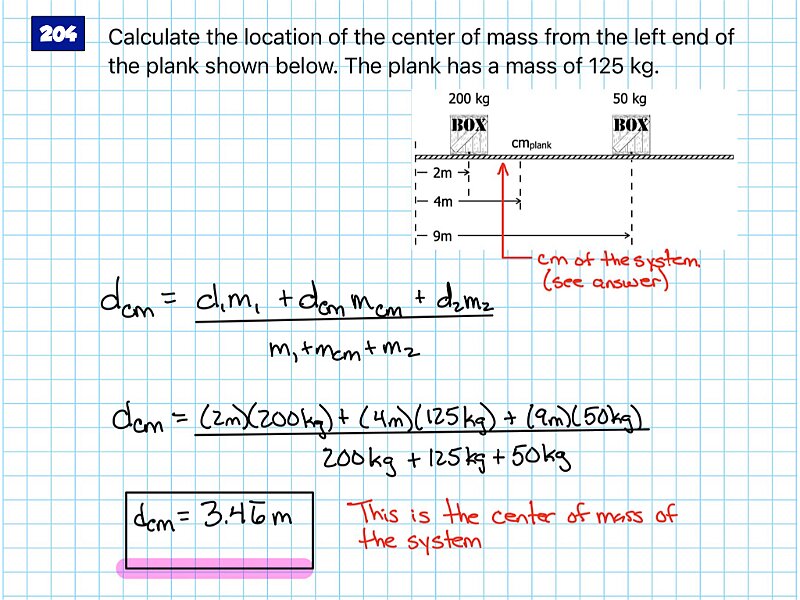 204
Calculate the location of the center of mass from the left end of
the plank shown below. The plank has a mass of 125 kg.
200 kg
50 kg
BOX
BOX
cm plank
2m
4m
9m
cm of the system.
(see answer)
dcm = d₁m₁ + dcm mcm + d₂m₂
m₁ + mcm + m₂
dcm = (2m)(200kg) + (4m)(125kg) + (9m)(50kg)
200kg + 125kg + 50kg
dcm = 3.46̅ m
This is the center of mass of
the system